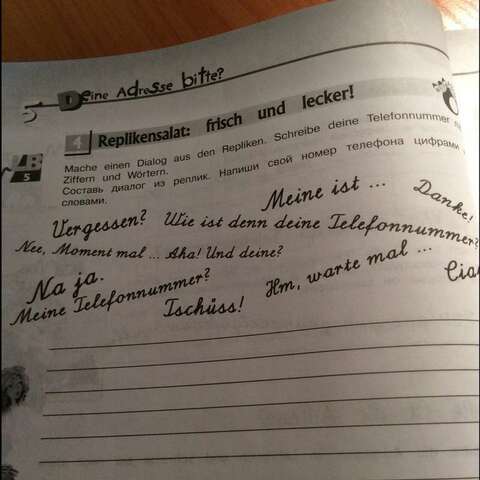 Deine Adresse bitte?
4 Replikensalat: frisch und lecker!
AB
5
Mache einen Dialog aus den Repliken. Schreibe deine Telefonnummer
Ziffern und Wörtern.
Составь диалог из реплик. Напиши свой номер телефона цифрами
словами.
Meine ist ... Danke!
Vergessen? Wie ist denn deine Telefonnummer?
Nee, Moment mal ... Aha! Und deine?
Na ja. Hm, warte mal ...
Meine Telefonnummer? Tschüss!